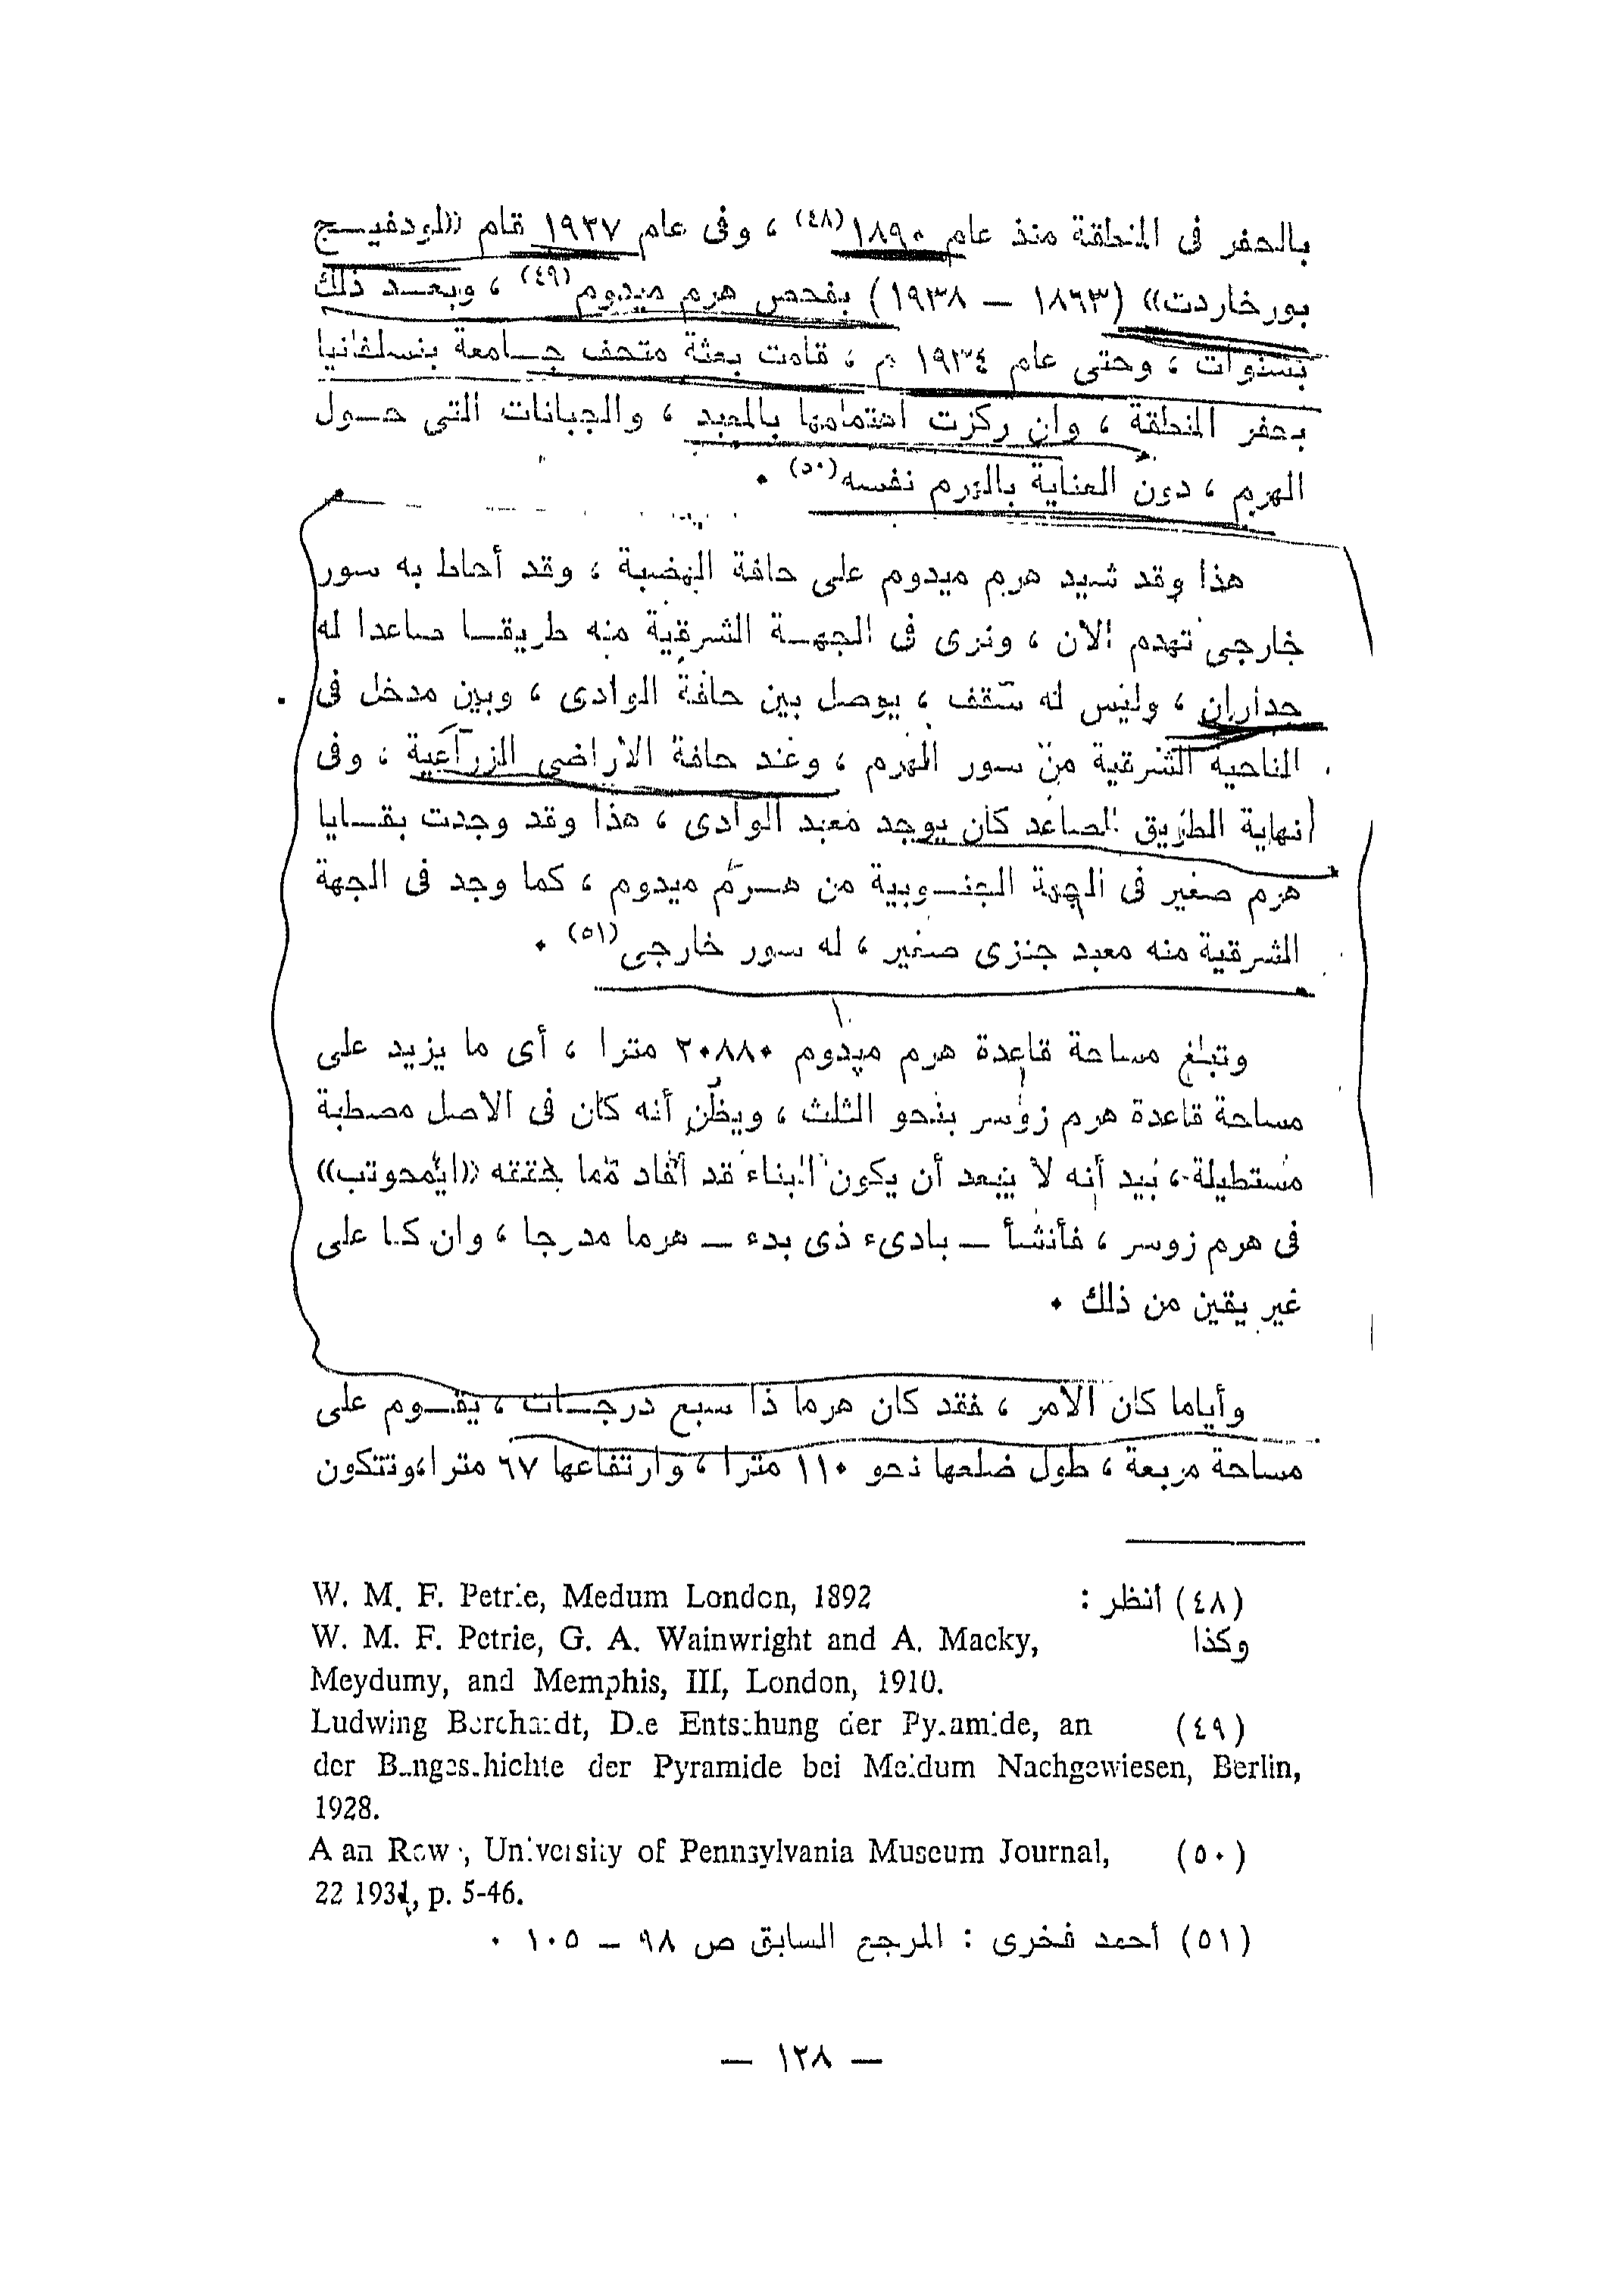 بالحفر فى المنطقة منذ عام ١٨٩٠(٤٨) ، وفى عام ١٩٢٧ قام «لودفيـج
بورخاردت» (١٨٦٣ – ١٩٣٨) بفحص هرم ميدوم(٤٩) ، وبعـد ذلك
بسنوات ، وحتى عام ١٩٣٤ م ، قامت بعثة متحف جـامعة بنسلفانيا
بحفر المنطقة ، وان ركزت اهتمامها بالمعبد ، والجبانات التى حـول
الهرم ، دون العناية بالهرم نفسه(٥٠) ٠
هذا وقد شيد هرم ميدوم على حافة الهضبة ، وقد أحاط به سور
خارجى تهدم الآن ، ونرى فى الجهـة الشرقية منه طريقـا صاعدا له
جداران ، وليس له سقف ، يوصل بين حافة الوادى ، وبين مدخل فى
الناحية الشرقية من سور الهرم ، وعند حافة الاراضى الزراعية ، وفى
نهاية الطريق الصاعد كان يوجد معبد الوادى ، هذا وقد وجدت بقـايا
هرم صغير فى الجهة الجنـوبية من هـرم ميدوم ، كما وجد فى الجهة
الشرقية منه معبد جنزى صغير ، له سور خارجى(٥١) ٠
وتبلغ مساحة قاعدة هرم ميدوم ٢٠٨٨٠ مترا ، أى ما يزيد على
مساحة قاعدة هرم زوسر بنحو الثلث ، ويظن أنه كان فى الاصل مصطبة
مستطيلة ، بيد أنه لا يبعد أن يكون البناء قد أفاد مما حققه «ايمحوتب»
فى هرم زوسر ، فأنشأ – بادىء ذى بدء – هرما مدرجا ، وان كنا على
غير يقين من ذلك ٠
وأياما كان الامر ، فقد كان هرما ذا سبع درجـات ، يقـوم على
مساحة مربعة ، طول ضلعها نحو ١١٠ مترا ، وارتفاعها ٦٧ مترا،وتتكون
(٤٨) أنظر : W. M. F. Petrie, Medum London, 1892
وكذا W. M. F. Petrie, G. A. Wainwright and A. Macky,
Meydumy, and Memphis, III, London, 1910.
(٤٩) Ludwing Borchardt, Die Entstehung der Pyramide, an
der Baugeschichte der Pyramide bei Meidum Nachgewiesen, Berlin,
1928.
(٥٠) Alan Rowe, University of Pennsylvania Museum Journal,
22 1931, p. 5-46.
(٥١) أحمد فخرى : المرجع السابق ص ٩٨ – ١٠٥ ٠
– ١٢٨ –